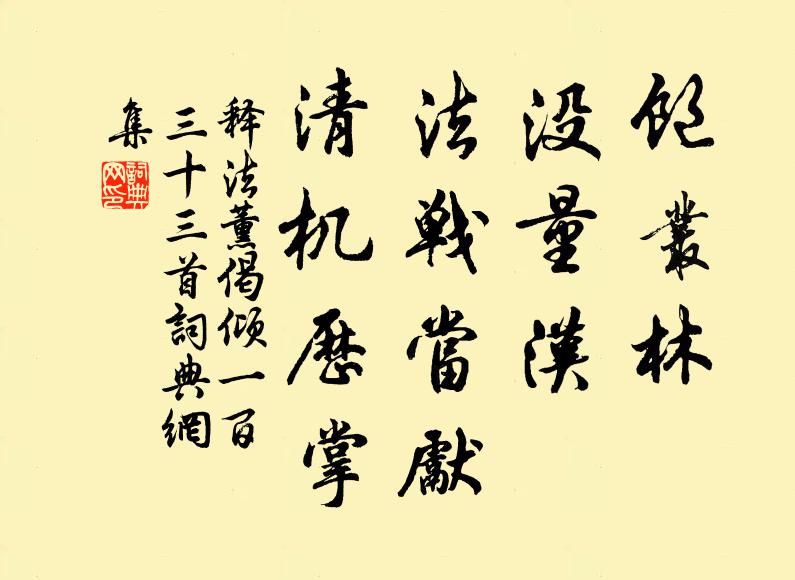 飽叢林
没量漢
法戰當獻
清机歷掌
释法薰偈倾一百
三十三首詞典網
集
詞典
网印